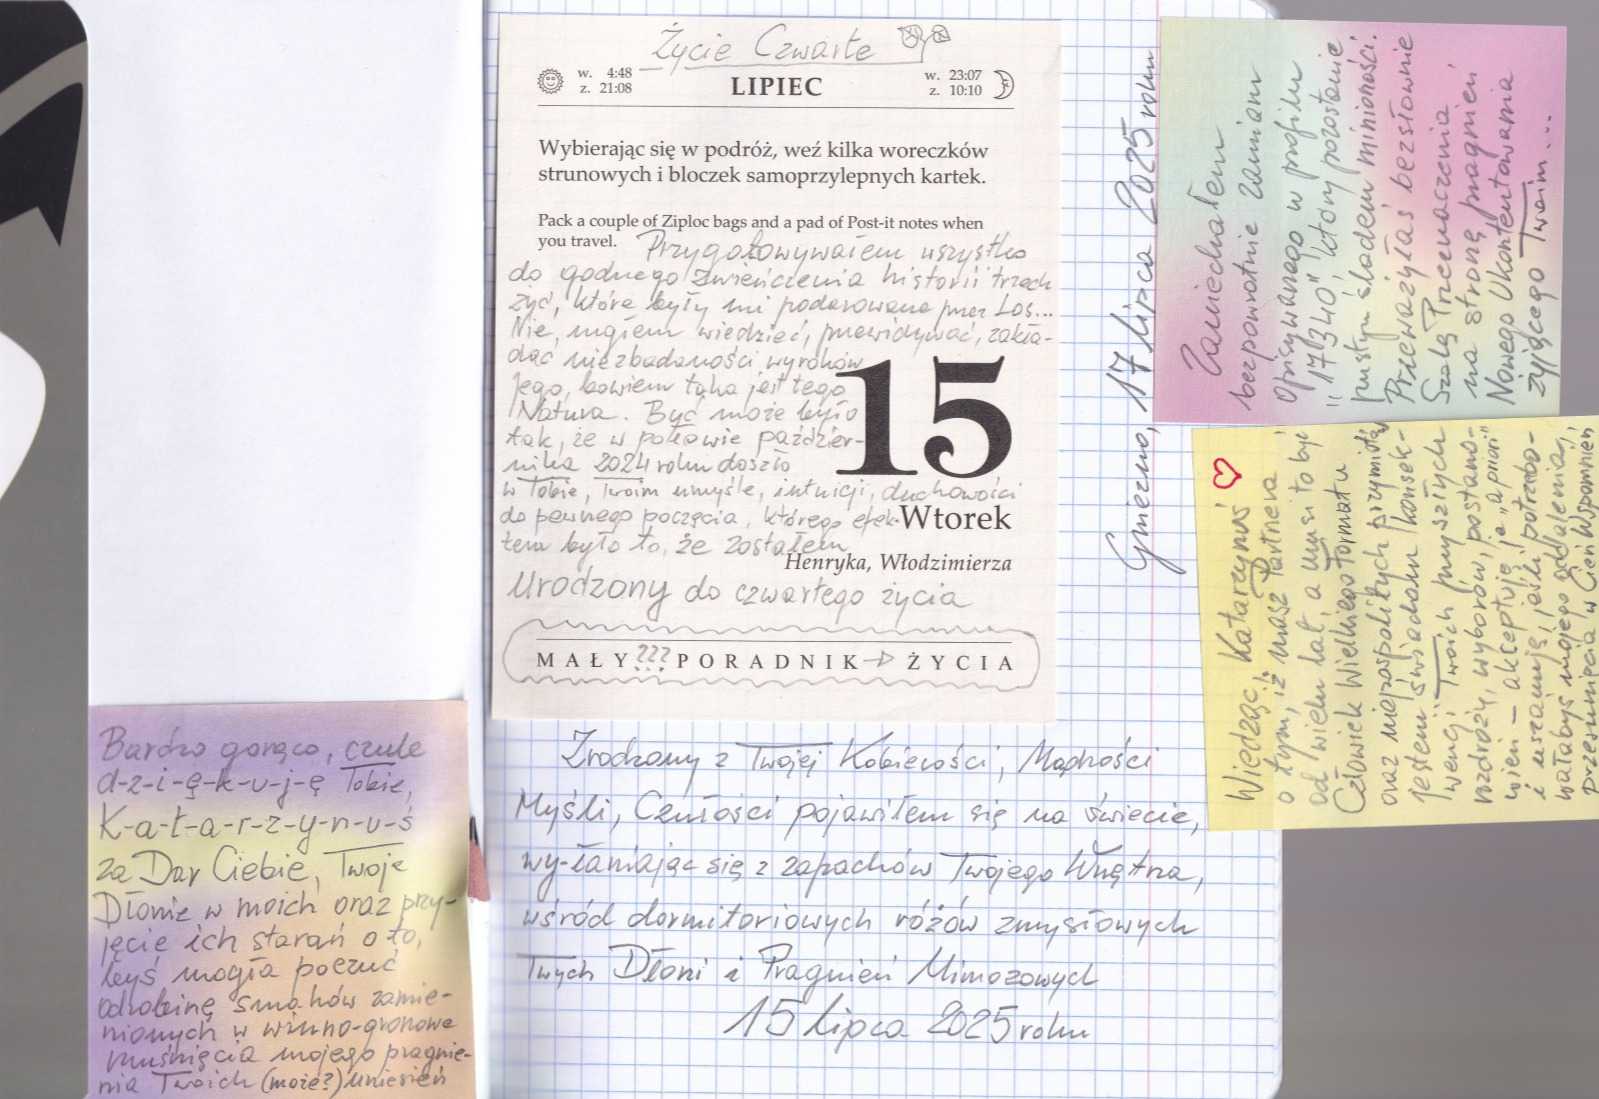 Życie Czwarte
w. 4:48
z. 21:08
LIPIEC
w. 23:07
z. 10:10
Wybierając się w podróż, weź kilka woreczków
strunowych i bloczek samoprzylepnych kartek.
Pack a couple of Ziploc bags and a pad of Post-it notes when
you travel.
Przygotowywałem wszystko
do godnego zwieńczenia historii trzech
żyć, które były mi podarowane przez Los...
Nie mogłem wiedzieć, przewidywać, zakła-
dać niezbadaności wyroków
jego, bowiem taka jest tego
Natura. Być może było
tak, że w połowie paździer-
nika 2024 roku doszło
w Tobie, Twoim umyśle, intuicji, duchowości
do pewnego poczęcia, którego efek-
tem było to, że zostałem
Urodzony do czwartego życia
15
Wtorek
Henryka, Włodzimierza
MAŁY ??? PORADNIK → ŻYCIA
Zrodzony z Twojej Kobiecości, Mądrości
Myśli, Czułości pojawiłem się na świecie,
wy-łaniając się z zapachów Twojego Wnętrza,
wśród dormitoriowych różów zmysłowych
Twych Dłoni i Pragnień Mimozowych
15 Lipca 2025 roku
Bardzo gorąco, czule
d-z-i-ę-k-u-j-ę Tobie,
K-a-t-a-r-z-y-n-u-ś
za Dar Ciebie, Twoje
Dłonie w moich oraz przy-
jęcie ich starań o to,
byś mogła poczuć
odrobinę smaków zamie-
nionych w winno-gronowe
muśnięcia mojego pragnie-
nia Twoich (może?) uniesień
Gniezno, 17 lipca 2025 roku
Zaniechałem
bezpowrotnie zamiaru
opisywanego w profilu
"17340", który pozostanie
pustym śladem minioności.
Przeważyłaś bezsłownie
Szalą Przeznaczenia
na stronę pragnień
Nowego Ukontentowania
żyjącego Twoim...
Wiedząc, Katarzynuś ♡
o tym, iż masz Partnera
od wielu lat, a musi to być
Człowiek Wielkiego Formatu
oraz niepospolitych przymiotów
jestem świadom konsek-
wencji Twoich przyszłych
rozdroży, wyborów, postano-
wień – akceptuję je „a priori"
i uszanuję, jeśli potrzebo-
wałabyś mojego oddalenia,
przesunięcia w Cień Wspomnień